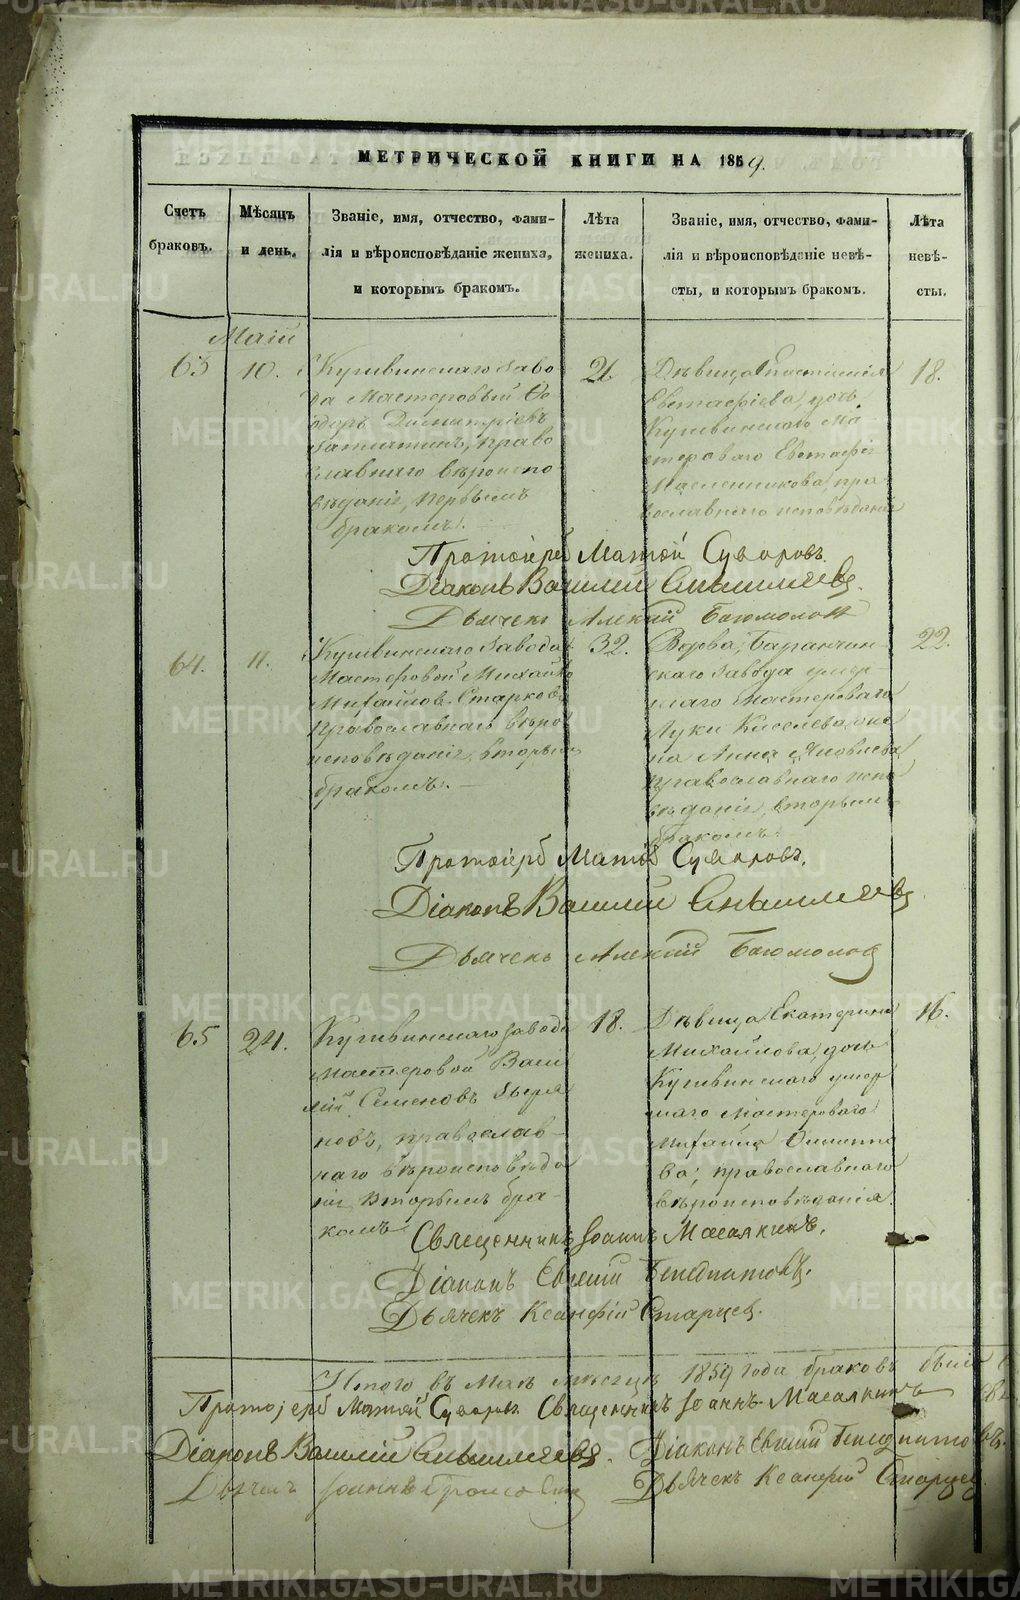 МЕТРИЧЕСКОЙ КНИГИ НА 1859.
Счетъ браковъ.
Мѣсяцъ и день.
Званіе, имя, отчество, фами-
лія и вѣроисповѣданіе жениха,
и которымъ бракомъ.
Лѣта жениха.
Званіе, имя, отчество, фами-
лія и вѣроисповѣданіе невѣ-
сты, и которымъ бракомъ.
Лѣта невѣ-
сты.
Маій
63
10.
Кушвинскаго Заво-
да Мастеровый Ѳе-
одоръ Димитріевъ
право
славнаго вѣроиспо-
вѣданія, первымъ
бракомъ.
21.
Дѣвица Анастасія
Евстафіева, дочь
Кушвинскаго Ма-
стероваго Евстафія
Масленникова, пра-
вославнаго исповѣданія
18.
Протоіерей Матѳій Суворовъ.
Діаконъ Василій
Дьячекъ Алексій Богомолов
64.
11.
Кушвинскаго Завода
Мастеровой Михаилъ
Михайлов Старков
православнаго вѣро
исповѣданія, вторымъ
бракомъ.
32.
Вдова, Баранчин-
скаго Завода умер-
шаго Мастероваго
Луки Киселева, же
на Анна Яковлева,
православнаго испо
вѣданія, вторымъ
бракомъ.
22.
Протоіерей Матѳій Суворовъ.
Діаконъ Василій
Дьячекъ Алексій Богомолов
65
24.
Кушвинскаго Завода
Мастеровой Васи
лій Семеновъ Зыря
новъ, православ-
наго вѣроисповѣда
нія, вторымъ бра-
комъ
18.
Дѣвица Екатерина
Михайлова, дочь
Кушвинскаго умер
шаго Мастероваго
Михаила
ва; православнаго
вѣроисповѣданія.
16.
Священникъ Іоаннъ Масалкинъ.
Діаконъ Евѳимій
Дьячекъ Ксанфій Старцев.
Итого въ Маѣ мѣсяцѣ 1859 года браковъ
Протоіерей Матѳій Суворовъ Священникъ Іоаннъ Масалкинъ
Діаконъ Василій
Діаконъ Евѳимій
Дьячекъ Іоаннъ
Дьячекъ Ксанфій Старцев
METRIKI.GASO-URAL.RU